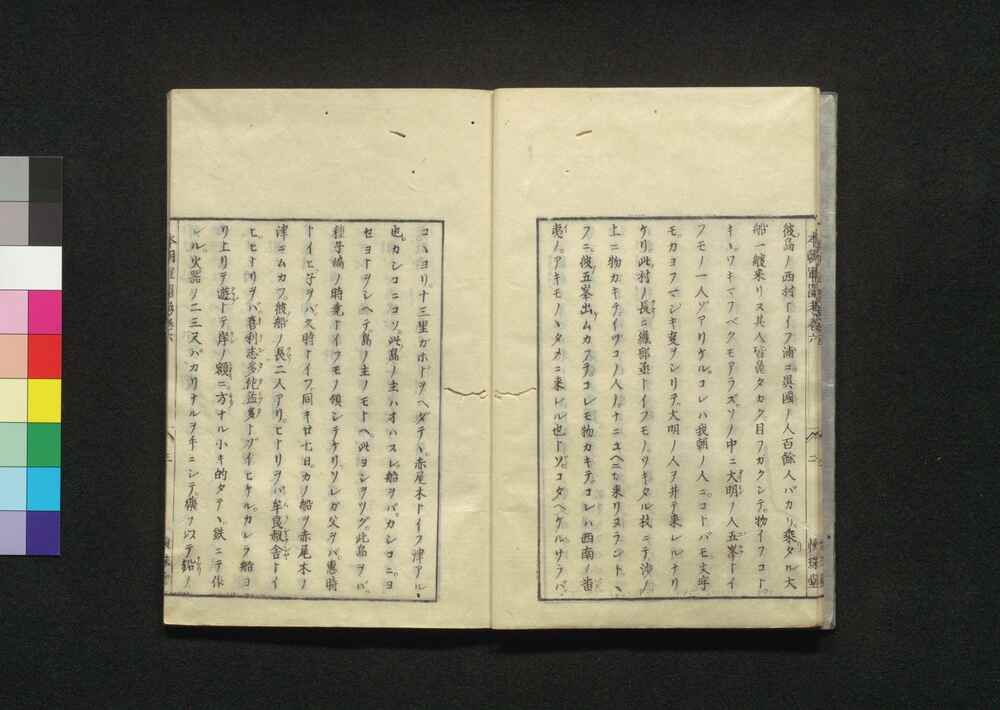 彼島ノ西村トイフ浦ニ異國ノ人百餘人バカリ乘タル大
船一艘来リス其人皆鼻タカク目フカクシテ。物イフコト。
キヽワキマフベクモアラズ。ソノ中ニ大明ノ人五峯トイ
フモノ一人ゾアリケル。コレハ我朝ノ人ニ。コトバモ文字
モカヨフマジキ
ケリ此村ノ長ニ織部丞トイフモノ。
土ニ物カキテイヅコノ人ノナニユヘニヤ来リヌラント、
フニ。彼五峯出ムカフテコレモ物カキテコレハ西南ノ蛮
夷ノ。アキモノヽタメニ来レル也トゾ。コタヘケル。サラバ。
コヽヨリ十三里ガホドヲヘダテヽ。赤尾木トイフ津アル。
也カシコニコソ。此島ノ主ハオハスレ。船ヲバ。カシコニ。ヨ
セヨトヲシヘテ島ノ主ノモトヘ此ヨシヲツグ。此島ヲバ。
種子嶋ノ時堯トイフモノ領シテケリ。ソレガ父ヲバ。惠時
トイヒ子ヲバ久時トイフ同キ廿七日。カノ船ヲ赤尾木ノ
津ニムカフ彼船ノ長二人アリ。ヒトリヲバ牟良叔舎トイ
ヒヒトリヲバ喜利志多佗孟太トゾイヒケル。カレラ船ヨ
リ上リテ遊トテ岸ノ額ニ。方ナル小キ的タテヽ鉄ニテ作
レル。火器ノ二三尺バカリナルヲ手ニシテ。